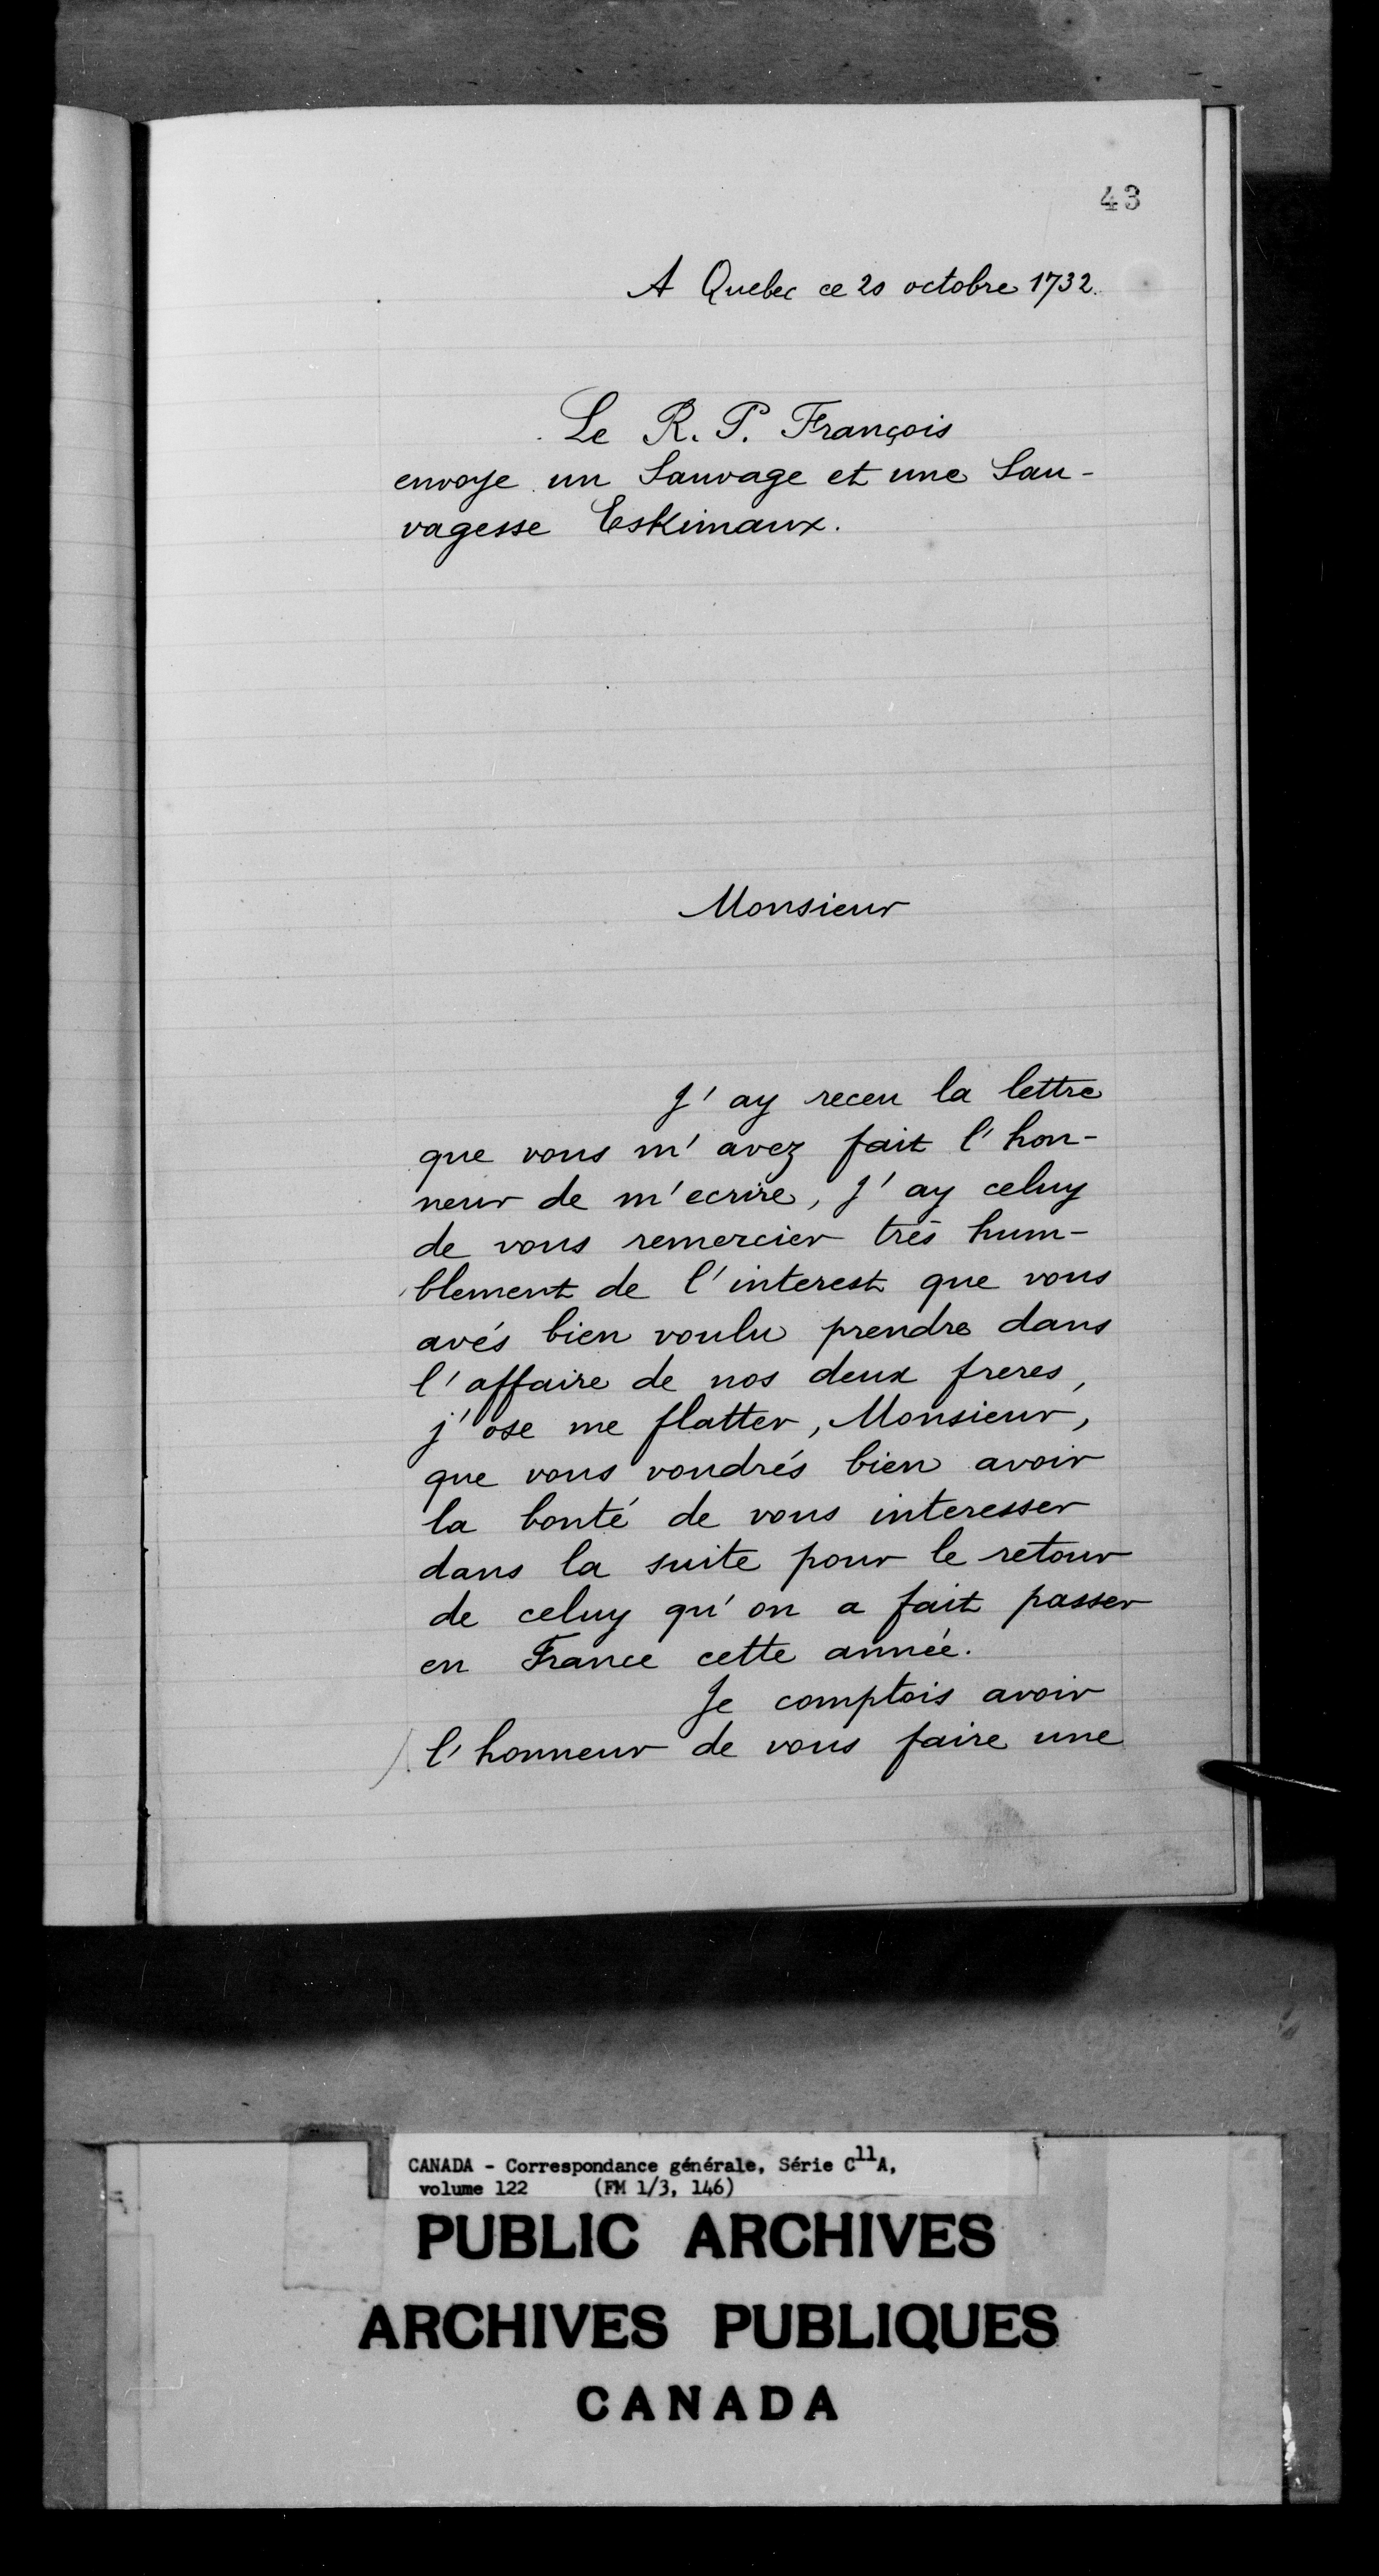 43
A Quebec ce 20 octobre 1732.
Le R. P. François
envoye un Sauvage et une Sau-
vagesse Eskimaux.
Monsieur
J'ay receu la lettre
que vous m'avez fait l'hon-
neur de m'ecrire, J'ay celuy
de vous remercier trés hum-
blement de l'interest que vous
avés bien voulu prendre dans
l'affaire de nos deux freres,
j'ose me flatter, Monsieur,
que vous voudrés bien avoir
la bonté de vous interesser
dans la suite pour le retour
de celuy qu'on a fait passer
en France cette année.
Je comptois avoir
l'honneur de vous faire une
CANADA - Correspondance générale, Série C11A,
volume 122 (FM 1/3, 146)
PUBLIC ARCHIVES
ARCHIVES PUBLIQUES
CANADA